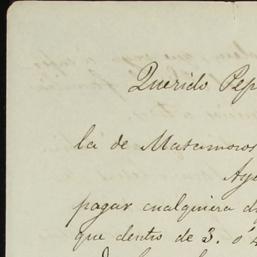 Querido Pep
la de Matamoros
Ay
pagar cualquiera d
que dentro de 3. o' 4